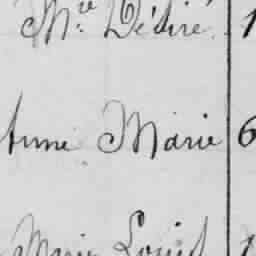 Mre Désiré 1
Anne Marie 6
Marie Louis 1